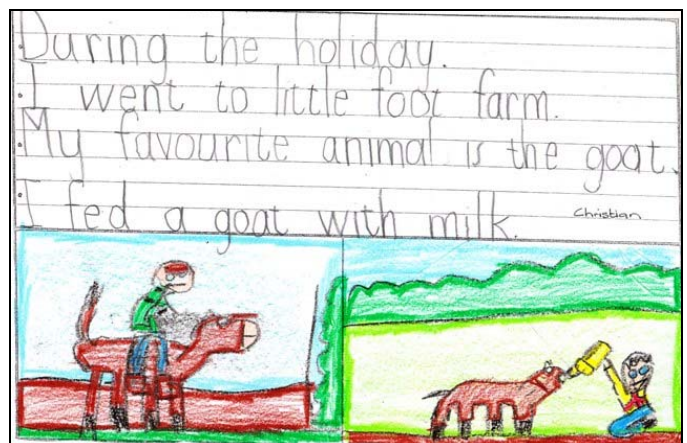 During the holiday.
I went to little foot farm.
My favourite animal is the goat.
I fed a goat with milk.
Christian